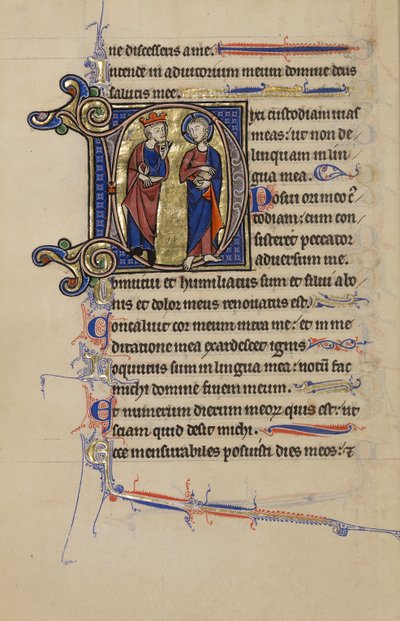 ne discesseris a me.
Intende in adiutorium meum domine deus
salutis mee.
Dixi custodiam uias
meas: ut non de
linquam in lin
gua mea.
Posui ori meo cus
todiam: cum con
sisteret peccator
aduersum me.
Obmutui et humiliatus sum et silui a bo
nis et dolor meus renouatus est.
Concaluit cor meum intra me: et in me
ditatione mea exardescet ignis
Loquutus sum in lingua mea: notum fac
michi domine finem meum.
Et numerum dierum meorum quis est: ut
sciam quid desit michi.
Ecce mensurabiles posuisti dies meos: et